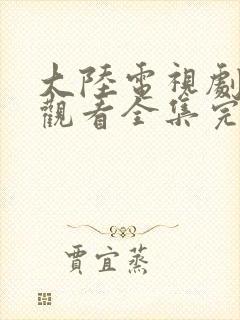 大陸電視劇
觀看全集完
賈宜蒸